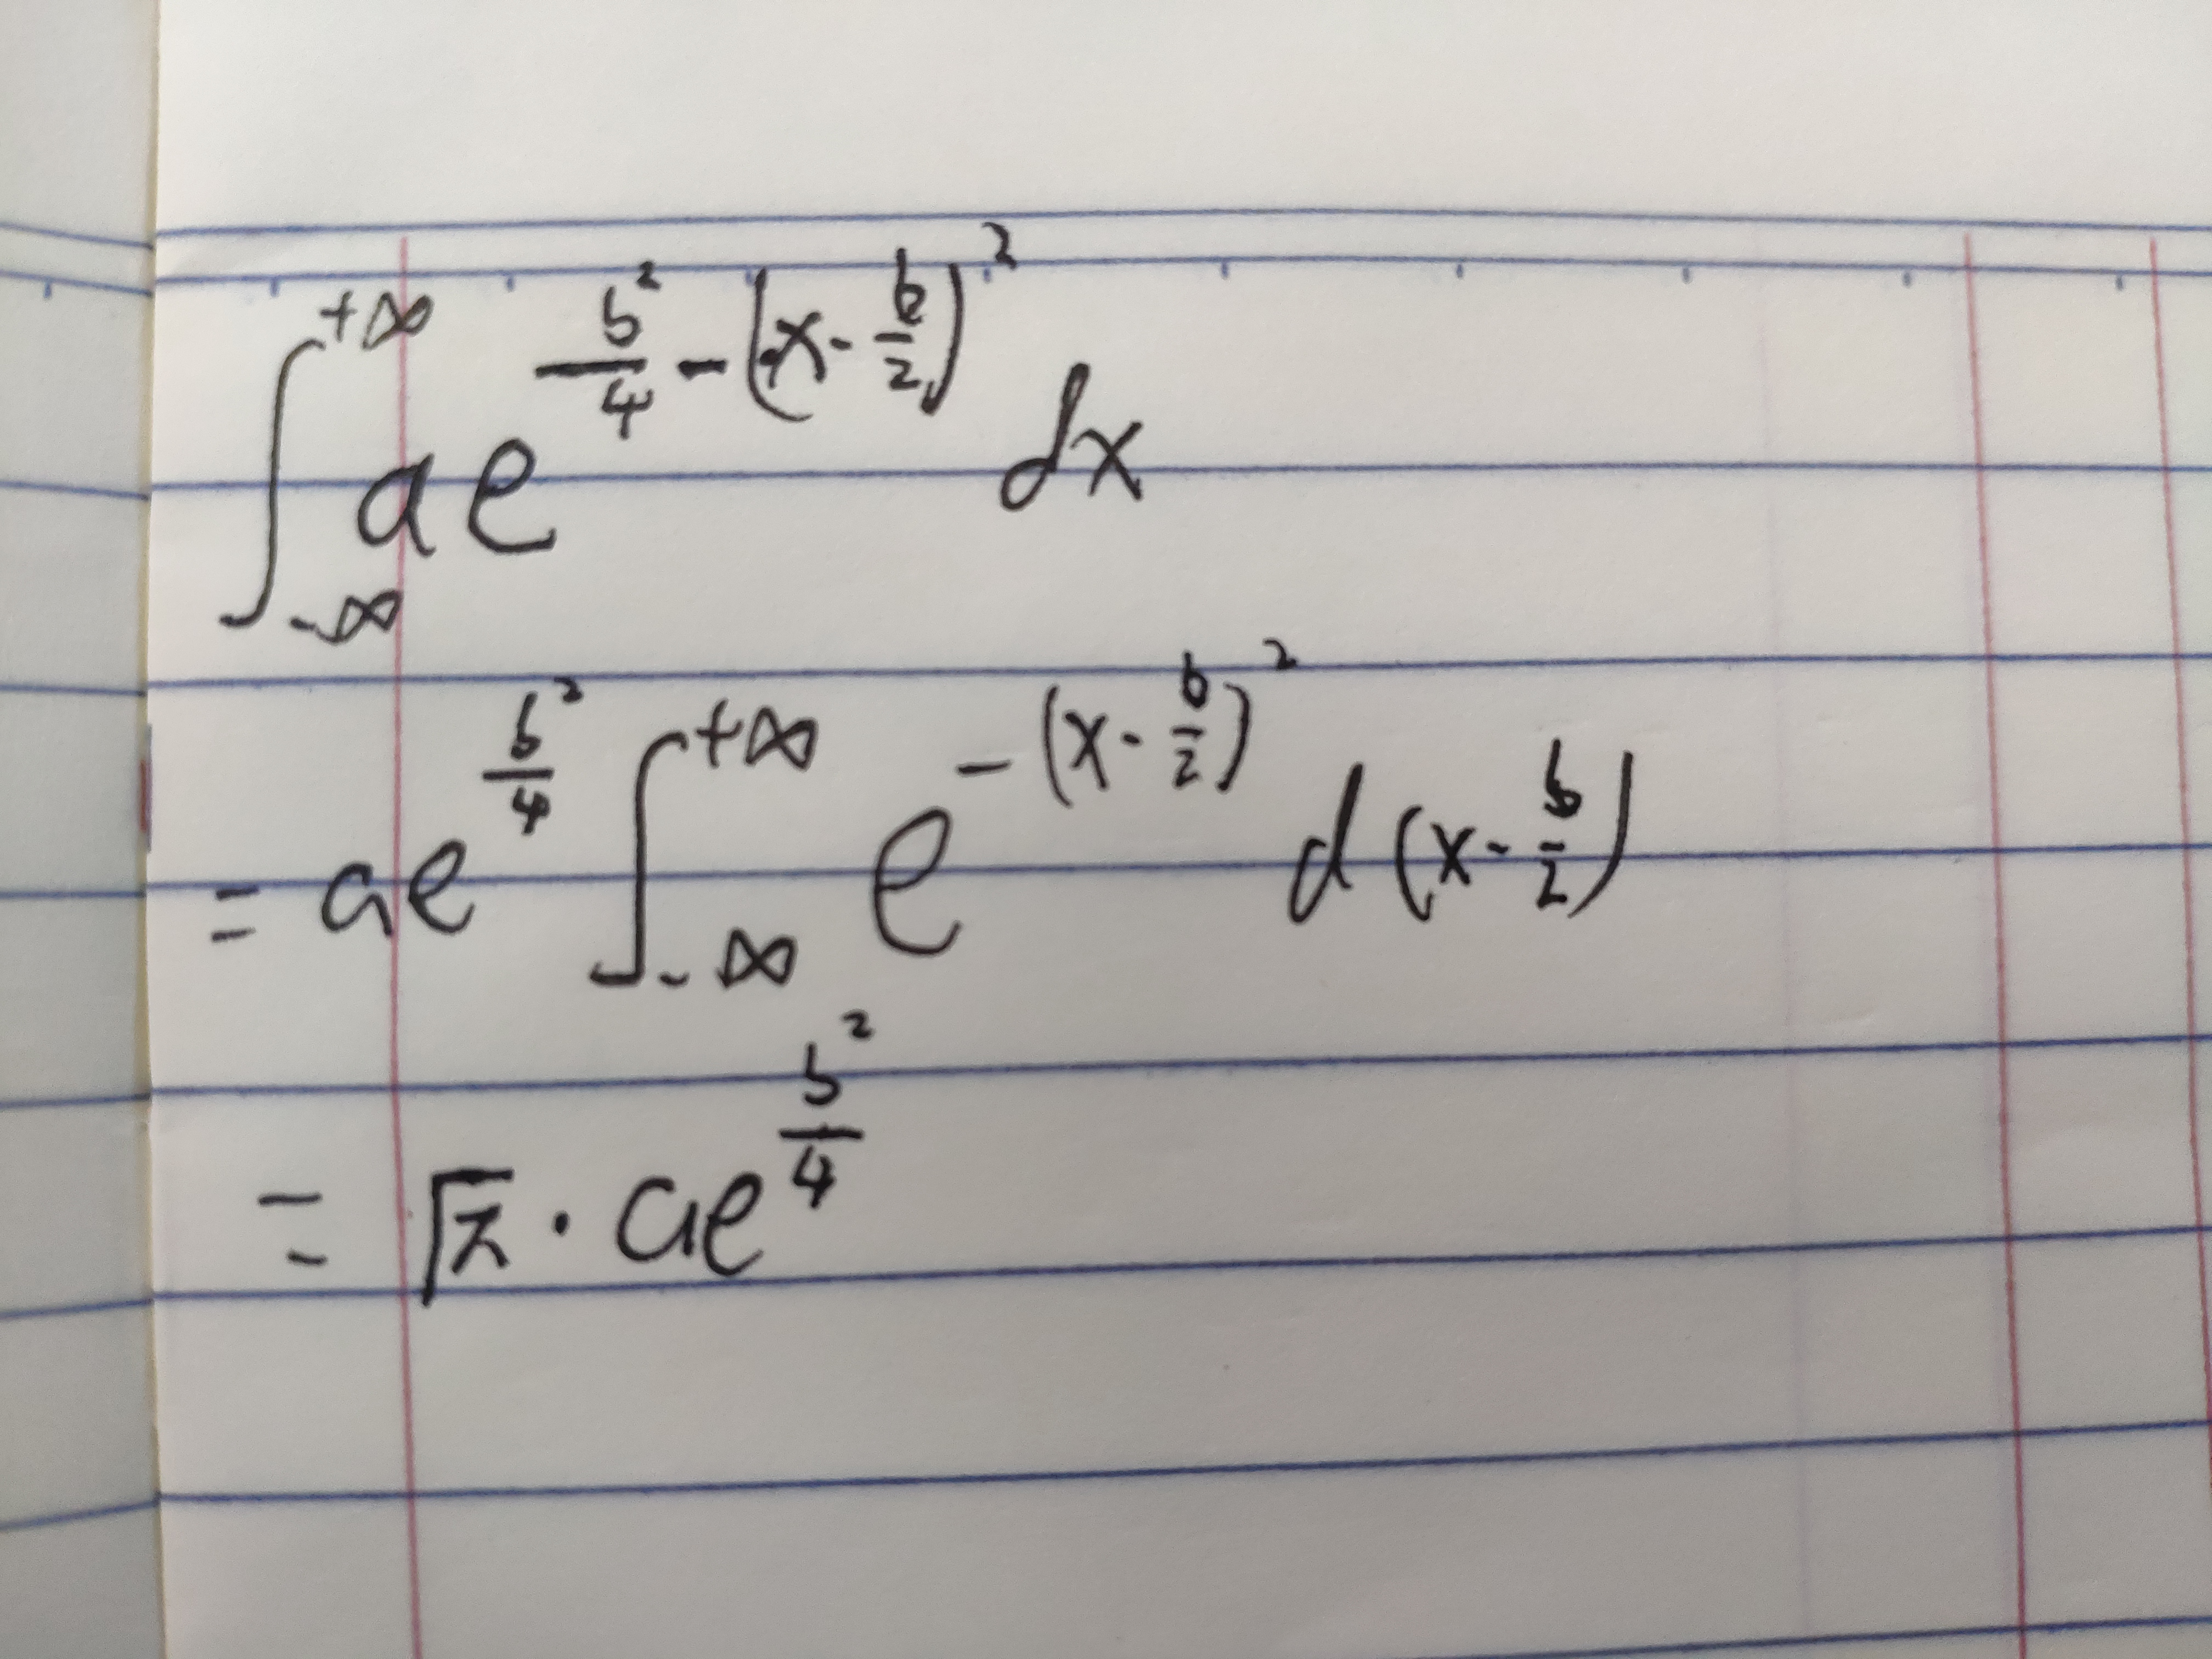 ∫_{-∞}^{+∞} a e^{\frac{b^2}{4} - (x - \frac{b}{2})^2} dx
= a e^{\frac{b^2}{4}} ∫_{-∞}^{+∞} e^{-(x - \frac{b}{2})^2} d(x - \frac{b}{2})
= \sqrt{π} · a e^{\frac{b^2}{4}}